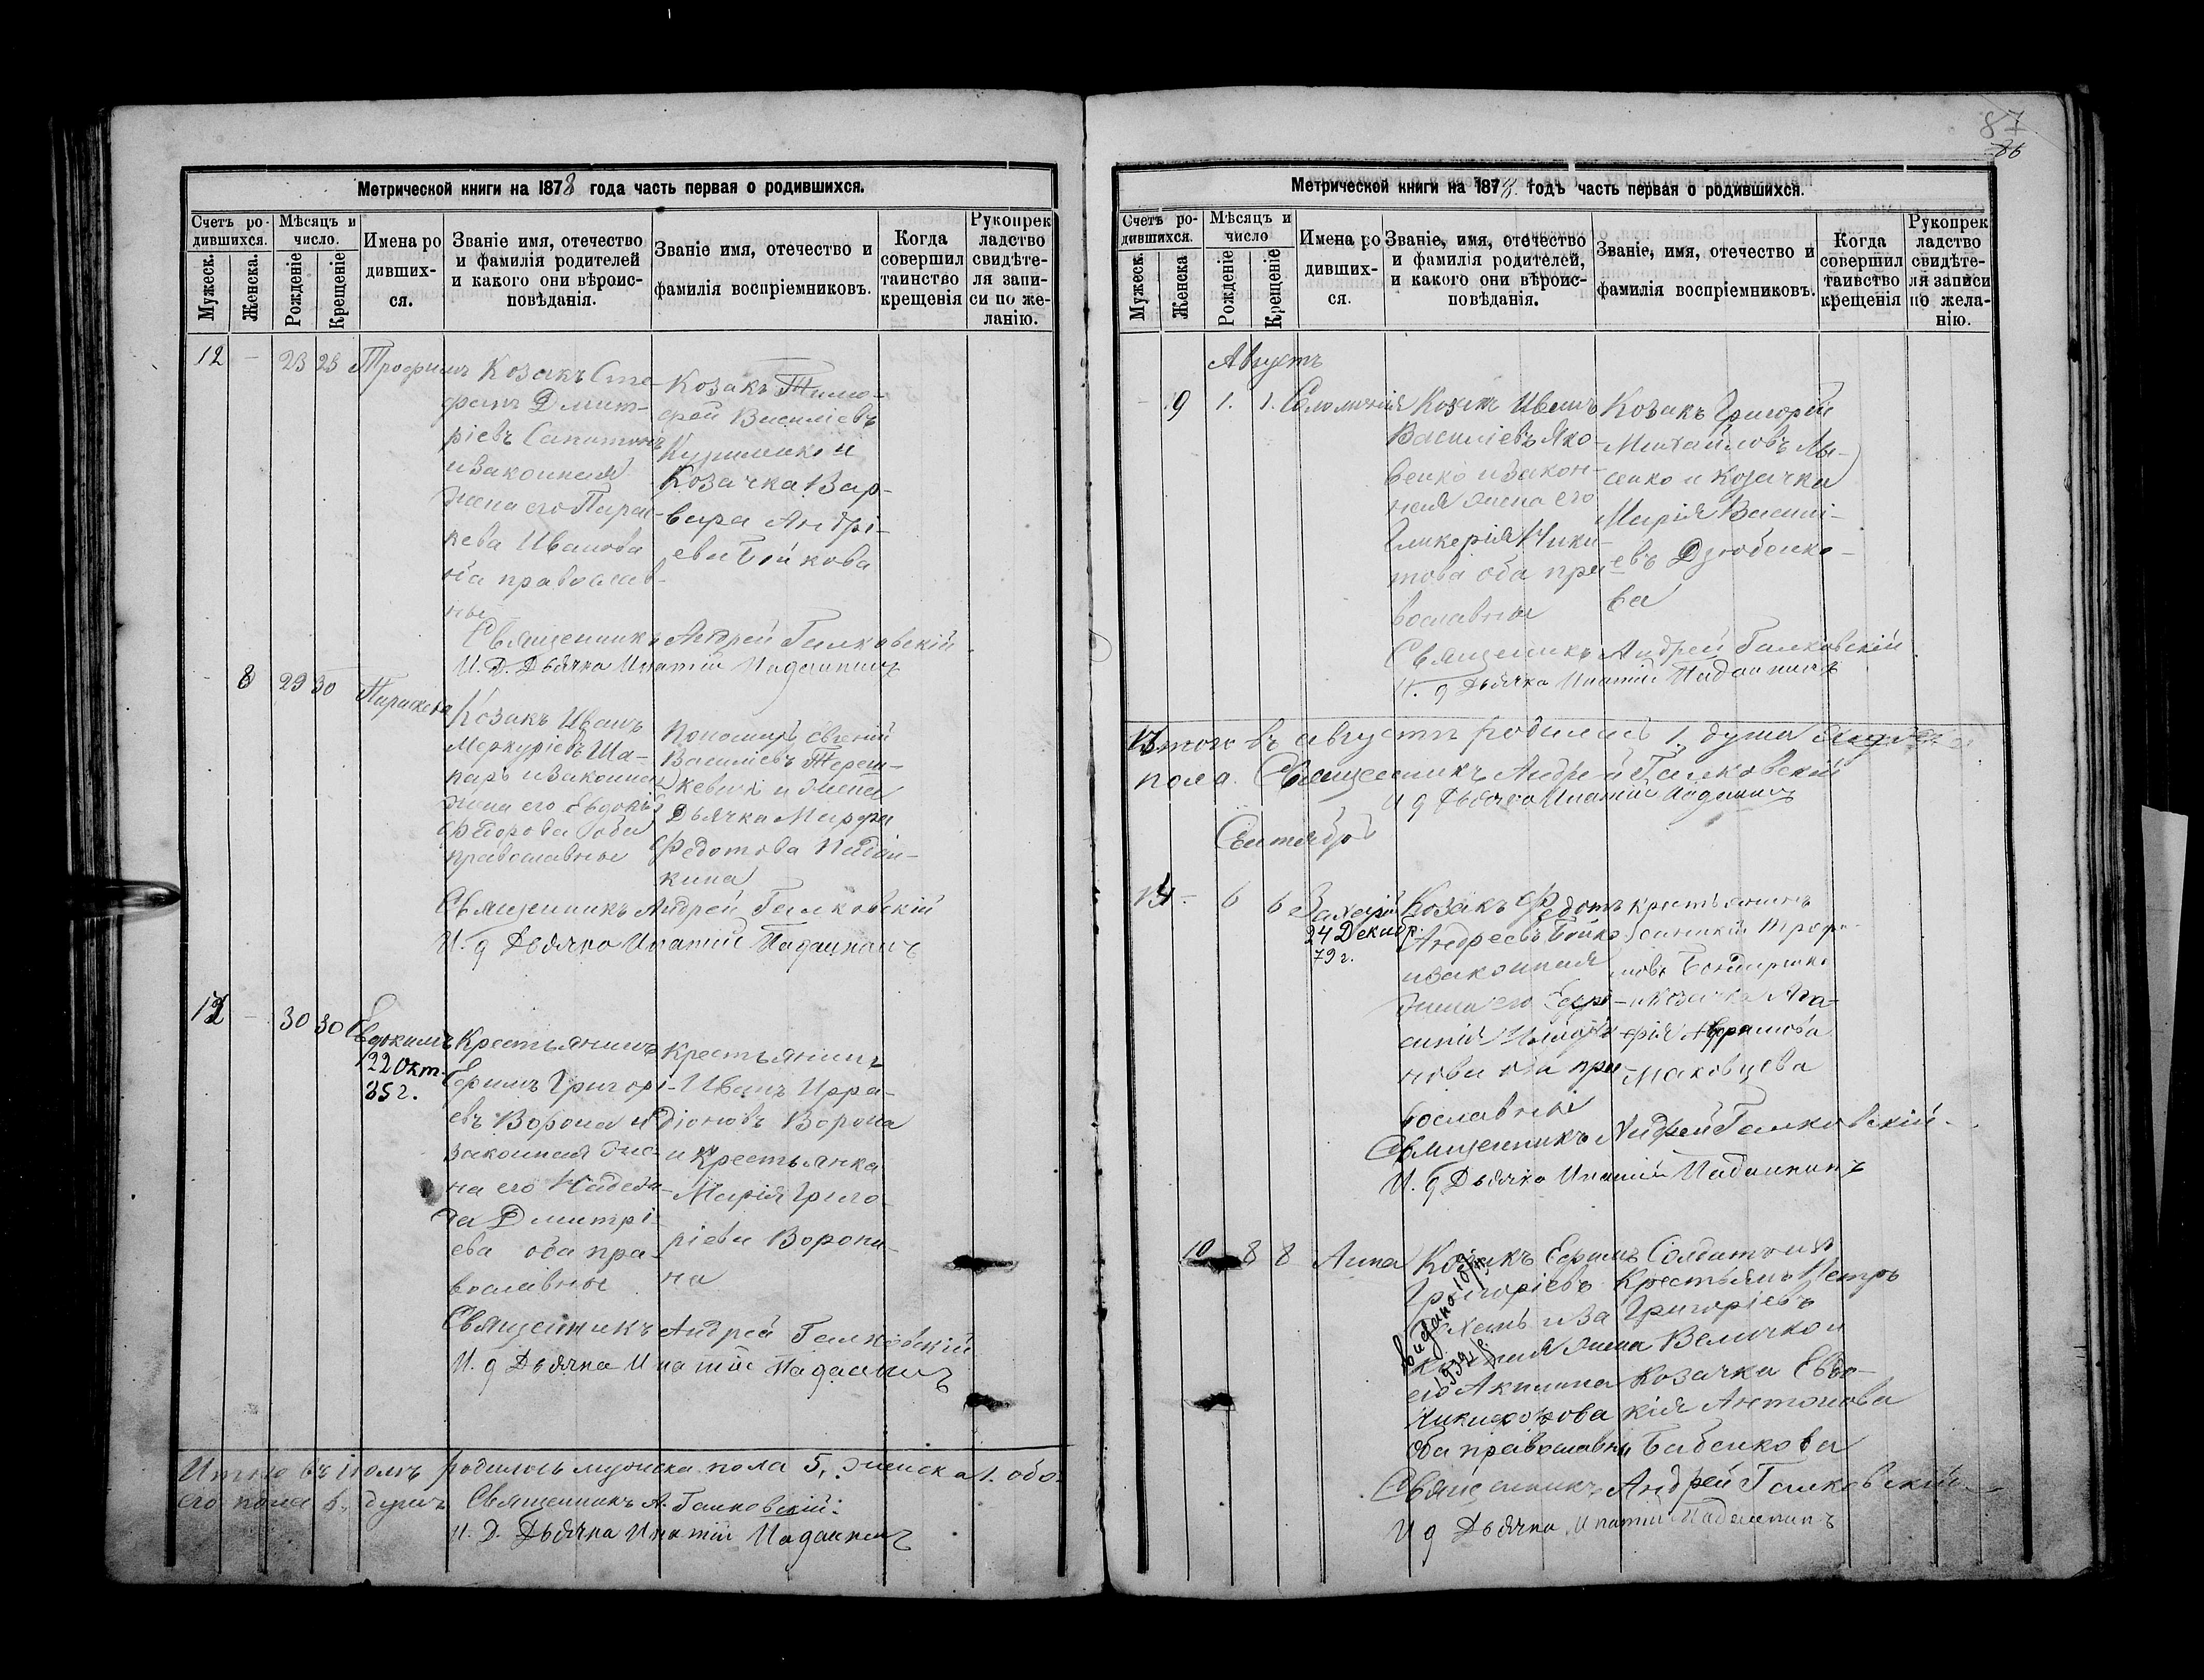 Метрической книги на 1878 года часть первая о родившихся.
Счетъ ро-
дившихся.
Мѣсяцъ и
число.
Мужеск.
Женска.
Рожденіе
Крещеніе
Имена ро
дивших-
ся.
Званіе имя, отечество
и фамилія родителей
и какого они вѣроис-
повѣданія.
Званіе имя, отечество и
фамилія воспріемниковъ.
Когда
совершил
таинство
крещенія
Рукопрек
ладство
свидѣте-
ля запи-
си по же-
ланію.
12 - 23 23 Трофимъ
Козакъ Сте-
фанъ Дмит-
ріевъ
и законная
жена его Парас-
кева Иванова
оба православ-
ны
Козакъ Тимо-
фей Василіевъ
и
Козачка Вар-
вара Андрі-
ева Бойкова
Священникъ Андрей Галковскій
И. Д. Дьячка Ипатій Надаикинъ
- 8 29 30 Параскева
Козакъ Иванъ
Меркуріевъ Ша-
паръ и законная
жена его Евдокія
Федорова оба
православные
Пономарь Евгеній
Василіевъ Тереш-
кевичъ и жена
Дьячка Марфа
Федотова Надаи-
кина
Священникъ Андрей Галковскій
И. д Дьячка Ипатій Надаикинъ
12 - 30 30 Евдокимъ
22 Окт.
85 г.
Крестьянинъ
Ефимъ Григорі-
евъ Ворона и
законная же-
на его Надеж-
да Дмитрі-
ева оба пра-
вославные
Крестьянинъ
Иванъ Ирра-
діоновъ Ворона
и Крестьянка
Марія Григо-
ріева Ворони-
на
Священникъ Андрей Галковскій
И. д Дьячка Ипатій Надаикинъ
Итого въ іюлѣ родилось мужеска пола 5, женска 1. обо-
его пола 6. душъ Священникъ А. Галковскій.
И. Д. Дьячка Ипатій Надаикинъ
87
86
Метрической книги на 1878. годъ часть первая о родившихся.
Счетъ ро-
дившихся.
Мѣсяцъ и
число
Мужеск.
Женска
Рожденіе
Крещеніе
Имена ро
дивших-
ся.
Званіе, имя, отечество
и фамилія родителей,
и какого они вѣроис-
повѣданія.
Званіе, имя, отечество и
фамилія воспріемниковъ.
Когда
совершил
таивство
крещенія
Рукопрек
ладство
свидѣте-
ля записи
по жела-
нію.
Августъ
- 9 1. 1. Соломонія
Козакъ Иванъ
Василіевъ Яко-
венко и закон-
ная жена его
Гликерія Ники-
това оба пра-
вославны
Козакъ Григорій
Михайловъ Лы-
сенко и Козачка
Марія Василі-
евъ Дзюбенко-
ва
Священикъ Андрей Галковскій
И. д Дьячка Ипатій Надаикинъ
Итого въ августѣ родилась 1. душа
пола. Священникъ Андрей Галковскій
И д Дьячка Ипатій Надаикинъ
Сентябрь
13 - 6 6 Захарій
24 Декабр.
79 г.
Козакъ Федотъ
Андреевъ Бойко
и законная
жена его Ефро-
синія
нова оба пра-
вославны
Крестьянинъ
Трофи-
мовъ Бондаренко
и Козачка Ага-
фія
Маковцева
Священникъ Андрей Галковскій.
И. д Дьячка Ипатій Надаикинъ
10 8 8 Анна
Козакъ Ефимъ
Григоріевъ
и за
конная жена
его Акилина
Никифорова
оба православны
Солдатъ изъ
Крестьянъ Петръ
Григоріевъ
Величко и
Козачка Евдо-
кія Антонова
Бабенкова
видано
1939 р.
Священникъ Андрей Галковскій
И д Дьячка Ипатій Надаикинъ